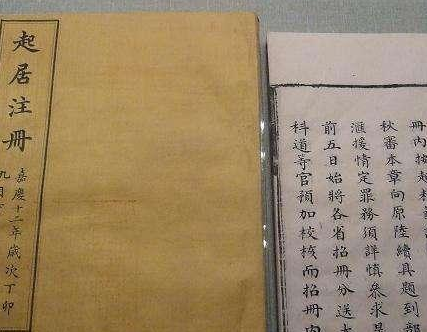 起居注冊
嘉慶十二年歲次丁卯
九月
冊內
秋審本章向原陸續具題到部
滙援情定罪務須詳慎叅求是
前五日始將各省招冊分送
科道等官預加校核而招冊内